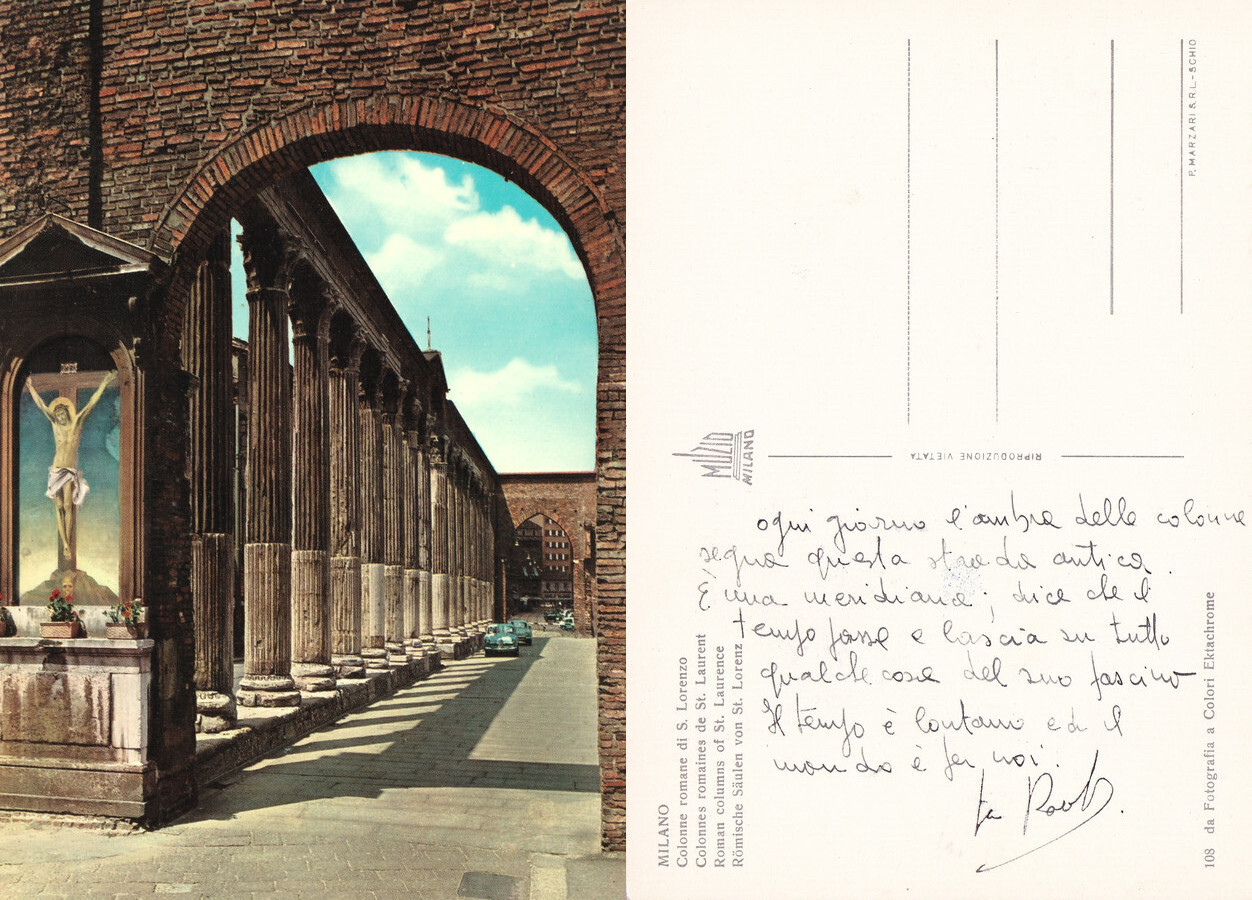 P. MARZARI S.R.L. - SCHIO
MUZIO
MILANO
RIPRODUZIONE VIETATA
ogni giorno l'ombra delle colonne
segna questa strada antica.
È una meridiana; dice che il
tempo passa e lascia su tutto
qualche cosa del suo fascino
Il tempo è lontano ed il
mondo è per noi.
MILANO
Colonne romane di S. Lorenzo
Colonnes romaines de St. Laurent
Roman columns of St. Laurence
Römische Säulen von St. Lorenz
108 da Fotografia a Colori Ektachrome